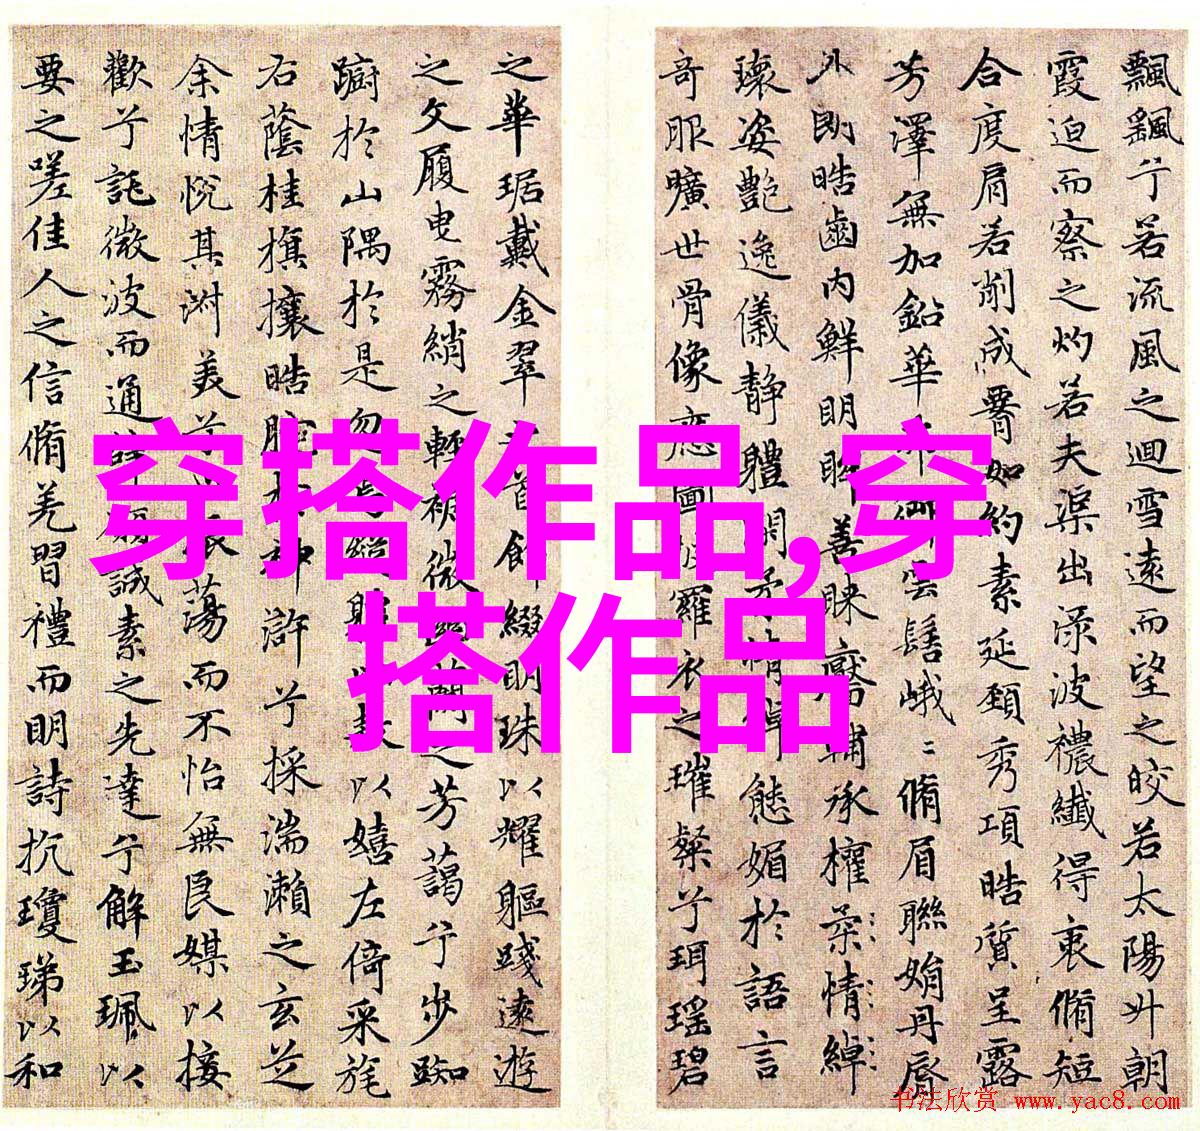 飄飖兮若流風之迴雪遠而望之皎若太陽升朝
霞迫而察之灼若夫渠出淥波穠纖得衷脩短
合度肩若削成腰如約素延頸秀項皓質呈露
芳澤無加鉛華雲髻峨〻脩眉聯娟丹唇
外朗皓齒內鮮明眸善睞靨輔承權柔情綽
瓌姿艷逸儀静體閑柔情綽態媚於語言
奇服曠世骨像應圖羅衣之璀粲兮珥瑤碧
之華琚戴金翠之首飾綴明珠以耀軀踐遠遊
之文履曳霧綃之輕裾微幽蘭之芳藹兮步踟
躕於山隅於是忽焉縱體以遨以嬉左倚采旄
右蔭桂旗攘皓腕於神滸兮採湍瀨之玄芝
余情悅其淑美兮振蕩而不怡無良媒以接
歡兮託微波而通辭願誠素之先達兮解玉珮以
要之嗟佳人之信脩羌習禮而明詩抗瓊珶以和
穿搭作品,穿
搭作品
书法欣赏 www.yac8.com